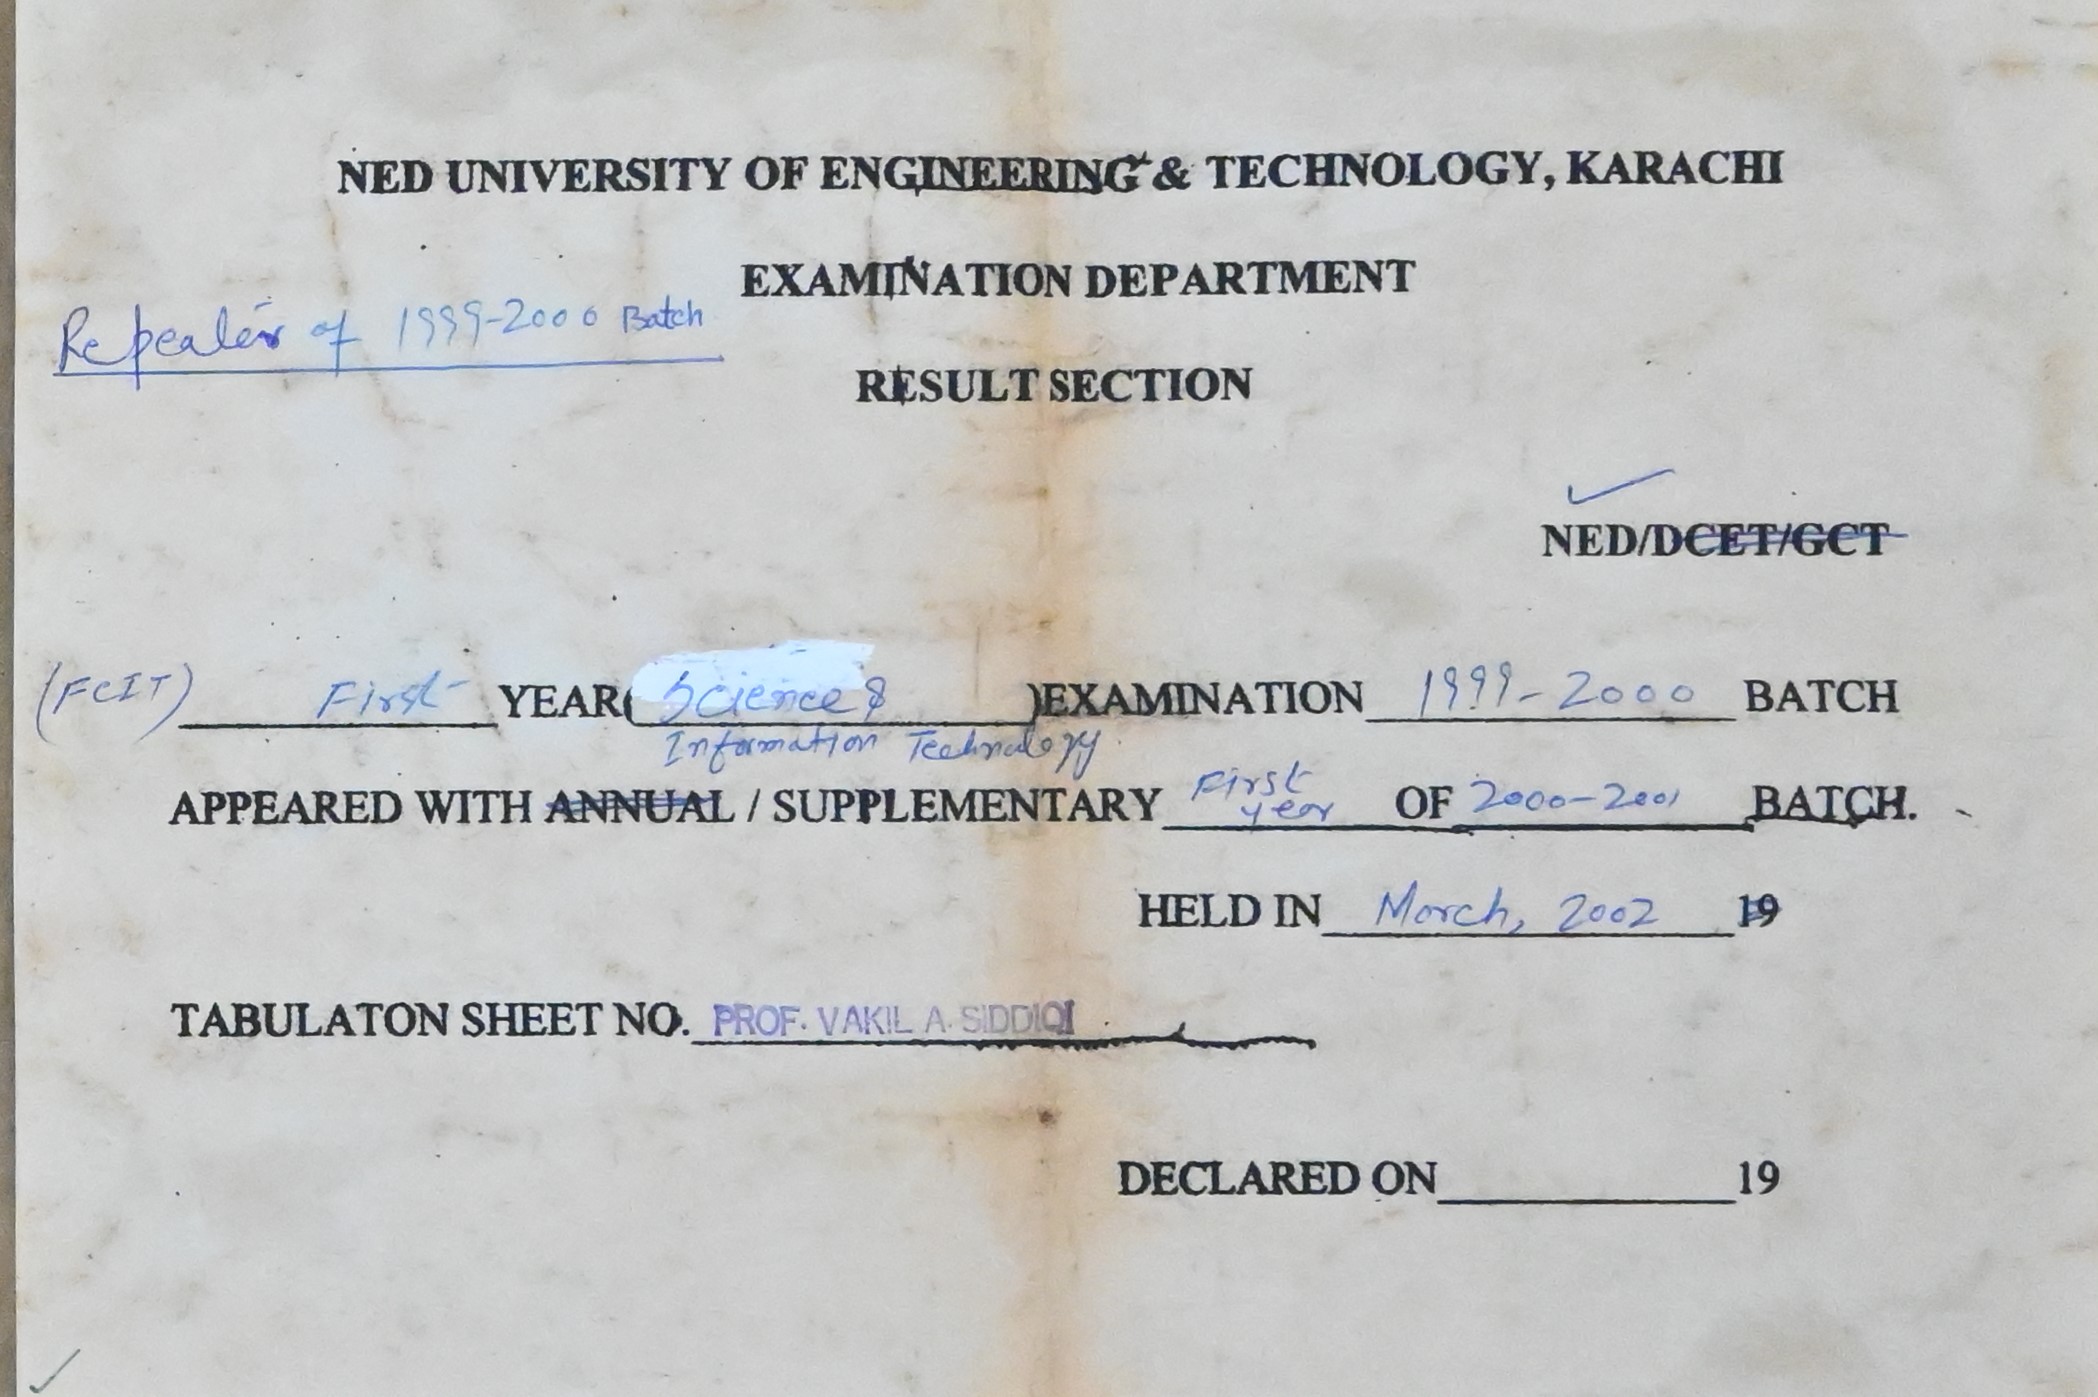 NED UNIVERSITY OF ENGINEERING & TECHNOLOGY, KARACHI
EXAMINATION DEPARTMENT
Repeater of 1999-2000 Batch
RESULT SECTION
NED/DCET/GCT
(FCIT) First YEAR( Science & )EXAMINATION 1999-2000 BATCH
Information Technology
APPEARED WITH ANNUAL / SUPPLEMENTARY First year OF 2000-2001 BATCH.
HELD IN March, 2002 19
TABULATON SHEET NO. PROF. VAKIL A. SIDDIQI
DECLARED ON 19